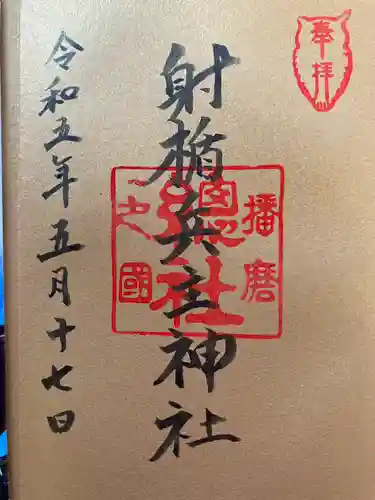 奉拝
播磨
國総社
之國
射楯兵主神社
令和五年五月十七日